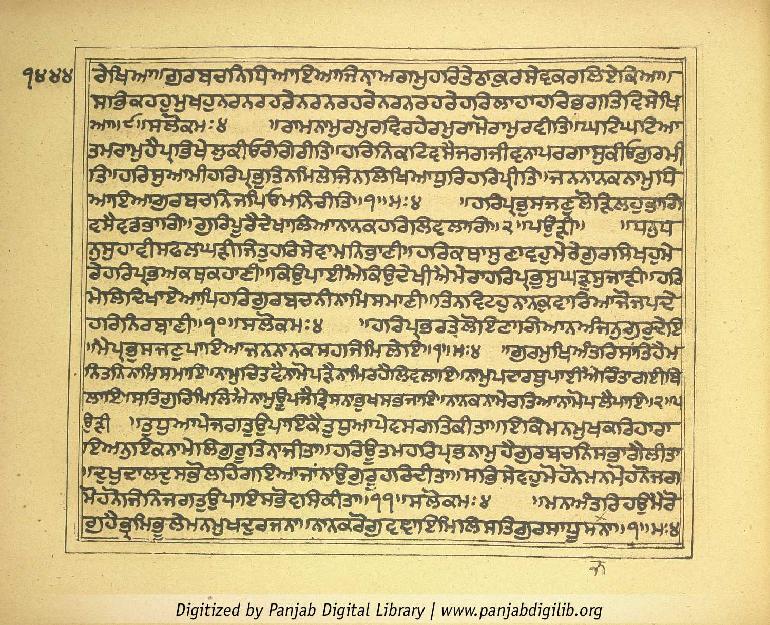 ੧੪੪੪
ਰੇਖਿਆ॥ਗੁਰਬਚਨਿਧਿਆਇਆਜਿਨਾਅਗਮੁਹਰਿਤੇਠਾਕੁਰਸੇਵਕਰਲਿਏਕਿਆ॥
ਸਭਿਕਹਹੁਮੁਖਹੁਨਰਨਰਹਰੇਨਰਨਰਹਰੇਨਰਨਰਹਰੇਹਰਿਲਾਹਾਹਰਿਭਗਤਿਵਿਸੇਖਿ
ਆ॥੯॥ਸਲੋਕਮਃ੪ ॥ਰਾਮਨਾਮੁਰਮੁਰਵਿਰਹੇਰਮੁਰਾਮੋਰਾਮੁਰਮੀਤਿ॥ਘਟਿਘਟਿਆ
ਤਮਰਾਮੁਹੈਪ੍ਰਭਿਖੇਲੁਕੀਓਰੰਗਿਰੀਤਿ॥ਹਰਿਨਿਕਟਿਵਸੈਜਗਜੀਵਨਾਪਰਗਾਸੁਕੀਓਗੁਰਮੀ
ਤਿ॥ਹਰਿਸੁਆਮੀਹਰਿਪ੍ਰਭੁਤਿਨਮਿਲੇਜਿਨਲਿਖਿਆਧੁਰਿਹਰਿਪ੍ਰੀਤਿ॥ਜਨਨਾਨਕਨਾਮੁਧਿ
ਆਇਆਗੁਰਬਚਨਿਜਪਿਓਮਨਿਚੀਤਿ॥੧॥ਮਃ੪ ॥ਹਰਿਪ੍ਰਭੁਸਜਣੁਲੋੜਿਲਹੁਭਾਗਿ
ਵਸੈਵਡਭਾਗਿ॥ਗੁਰਿਪੂਰੈਦੇਖਾਲਿਆਨਾਨਕਹਰਿਲਿਵਲਾਗਿ॥੨॥ਪਉੜੀ॥ ॥ਧਨੁਧ
ਨੁਸੁਹਾਵੀਸਫਲਘੜੀਜਿਤੁਹਰਿਸੇਵਾਮਨਿਭਾਣੀ॥ਹਰਿਕਥਾਸੁਣਾਵਹੁਮੇਰੇਗੁਰਸਿਖਹੁਮੇ
ਰੇਹਰਿਪ੍ਰਭਅਕਥਕਹਾਣੀ॥ਕਿਉਪਾਈਐਕਿਉਦੇਖੀਐਮੇਰਾਹਰਿਪ੍ਰਭੁਸੁਘੜੁਸੁਜਾਣੀ॥ਹਰਿ
ਮੇਲਿਦਿਖਾਏਆਪਿਹਰਿਗੁਰਬਚਨੀਨਾਮਿਸਮਾਣੀ॥ਤਿਨਵਿਟਹੁਨਾਨਕੁਵਾਰਿਆਜੋਜਪਦੇ
ਹਰਿਨਿਰਬਾਣੀ॥੧੦॥ਸਲੋਕਮਃ੪ ॥ਹਰਿਪ੍ਰਭਰਤੇਲੋਇਣਾਗਿਆਨਅੰਜਨੁਗੁਰੁਦੇਇ
॥ਮੈਪ੍ਰਭੁਸਜਣੁਪਾਇਆਜਨਨਾਨਕਸਹਜਿਮਿਲੇਇ॥੧॥ਮਃ੪ ॥ਗੁਰਮੁਖਿਅੰਤਰਿਸਾਂਤਿਹੈਮ
ਨਿਤਨਿਨਾਮਿਸਮਾਇ॥ਨਾਮੁਚਿਤਵੈਨਾਮੋਪੜੈਨਾਮਿਰਹੈਲਿਵਲਾਇ॥ਨਾਮੁਪਦਾਰਥੁਪਾਈਐਚਿੰਤਾਗਈਬਿ
ਲਾਇ॥ਸਤਿਗੁਰਿਮਿਲਿਐਨਾਮੁਊਪਜੈਤ੍ਰਿਸਨਾਭੁਖਸਭਜਾਇ॥ਨਾਨਕਨਾਮੇਰਤਿਆਨਾਮੋਪਲੈਪਾਇ॥੨॥ਪ
ਉੜੀ ॥ਤੁਧੁਆਪੇਜਗਤੁਉਪਾਇਕੈਤੁਧੁਆਪੇਵਸਗਤਿਕੀਤਾ॥ਇਕਿਮਨਮੁਖਕਰਿਹਾਰਾ
ਇਅਨੁਇਕਨਾਮੇਲਿਗੁਰੂਤਿਨਾਜੀਤਾ॥ਹਰਿਊਤਮੁਹਰਿਪ੍ਰਭਨਾਮੁਹੈਗੁਰਬਚਨਿਸਭਾਗੈਲੀਤਾ
॥ਦੁਖੁਦਾਲਦੁਸਭੋਲਹਿਗਇਆਜਾਂਨਾਉਗੁਰੂਹਰਿਦੀਤਾ॥ਸਭਿਸੇਵਹੁਮੋਹਨੋਮਨਮੋਹਨੋਜਗ
ਮੋਹਨੋਜਿਨਿਜਗਤੁਉਪਾਇਸਭੋਵਸਿਕੀਤਾ॥੧੧॥ਸਲੋਕਮਃ੪ ॥ਮਨਅੰਤਰਿਹਉਮੈਰੋ
ਗੁਹੈਭ੍ਰਮਿਭੂਲੇਮਨਮੁਖਦੁਰਜਨਾ॥ਨਾਨਕਰੋਗੁਵਞਾਇਮਿਲਿਸਤਿਗੁਰਸਾਧੂਸਜਨਾ॥੧॥ਮਃ੪
Digitized by Panjab Digital Library | www.panjabdigilib.org